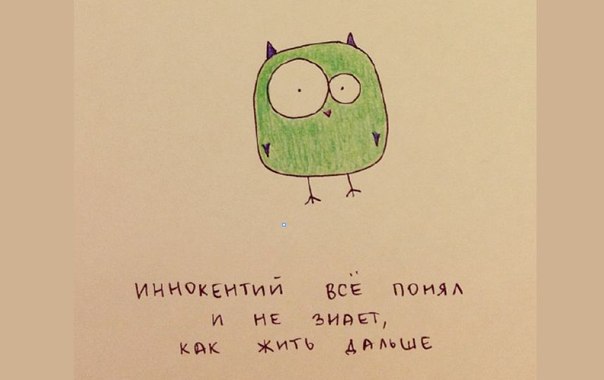 ИННОКЕНТИЙ ВСЁ ПОНЯЛ
И НЕ ЗНАЕТ,
КАК ЖИТЬ ДАЛЬШЕ